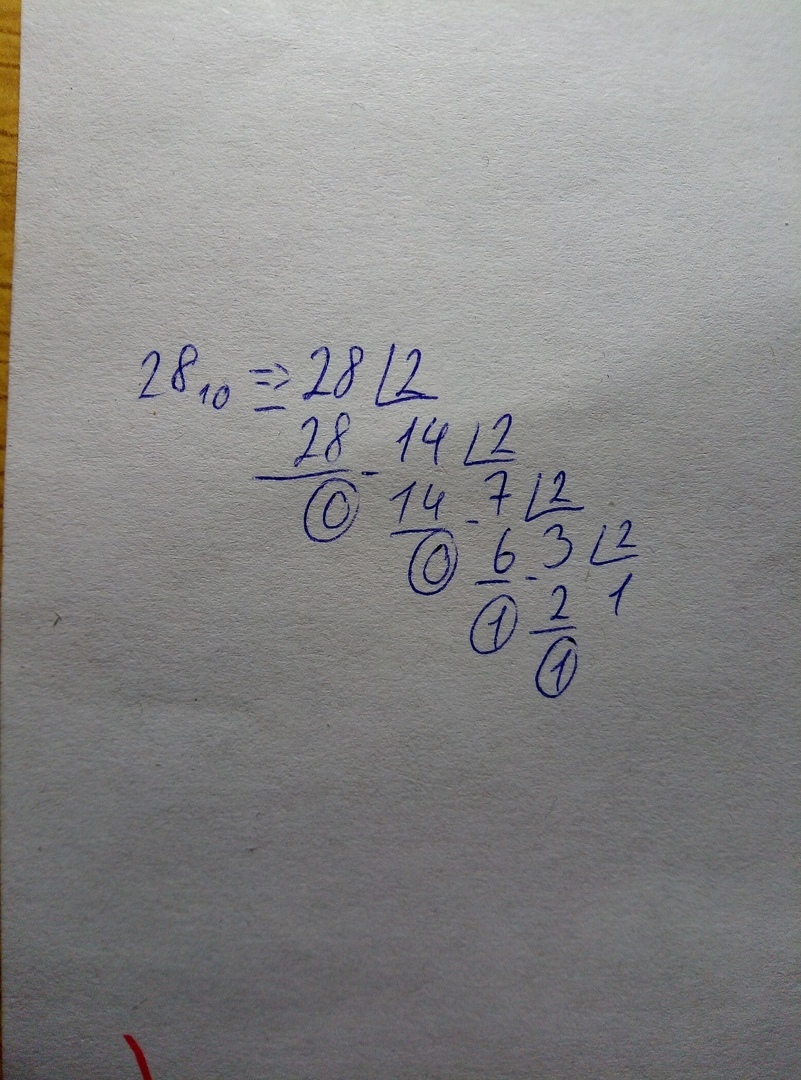 28₁₀ => 28 |2
28 - 14 |2
0 14 - 7 |2
0 6 - 3 |2
1 2 1
1